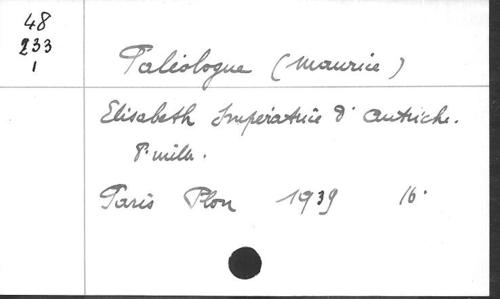 48
233
1
Paléologue (Maurice)
Elisabeth Impératrice d'Autriche.
9e mille.
Paris Plon 1939 16°